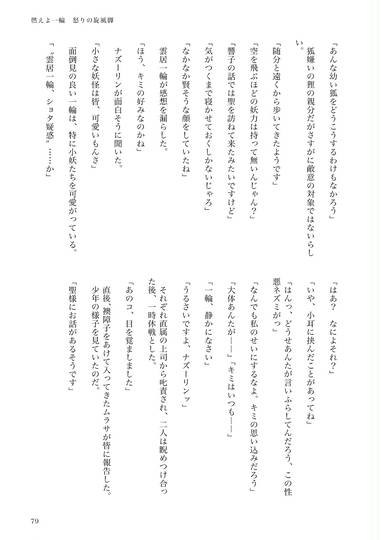 燃えよ一輪 怒りの旋風脚
「あんな幼い狐をどうこうするわけもなかろう」
狐嫌いの狸の親分だがさすがに敵意の対象ではないらし
い。
「随分と遠くから歩いてきたようです」
「空を飛ぶほどの妖力は持って無いんじゃん?」
「響子の話では聖を訪ねて来たみたいですけど」
「気がつくまで寝かせておくしかないじゃろ」
「なかなか賢そうな顔をしていたね」
雲居一輪が感想を漏らした。
「ほう、キミの好みなのかね」
ナズーリンが面白そうに聞いた。
「小さな妖怪は皆、可愛いもんさ」
面倒見の良い一輪は、特に小妖たちを可愛がっている。
「〝雲居一輪、ショタ疑惑〟……か」
「はあ? なによそれ?」
「いや、小耳に挟んだことがあってね」
「はんっ、どうせあんたが言いふらしてんだろう、この性
悪ネズミがっ」
「なんでも私のせいにするなよ。キミの思い込みだろう」
「大体あんたが――」「キミはいつも――」
「一輪、静かになさい」
「うるさいですよ、ナズーリンッ」
それぞれ直属の上司から叱責され、二人は睨めつけ合っ
た後、一時休戦とした。
「あのコ、目を覚ましました」
直後、襖障子をあけて入ってきたムラサが皆に報告した。
少年の様子を見ていたのだ。
「聖様にお話があるそうです」
79